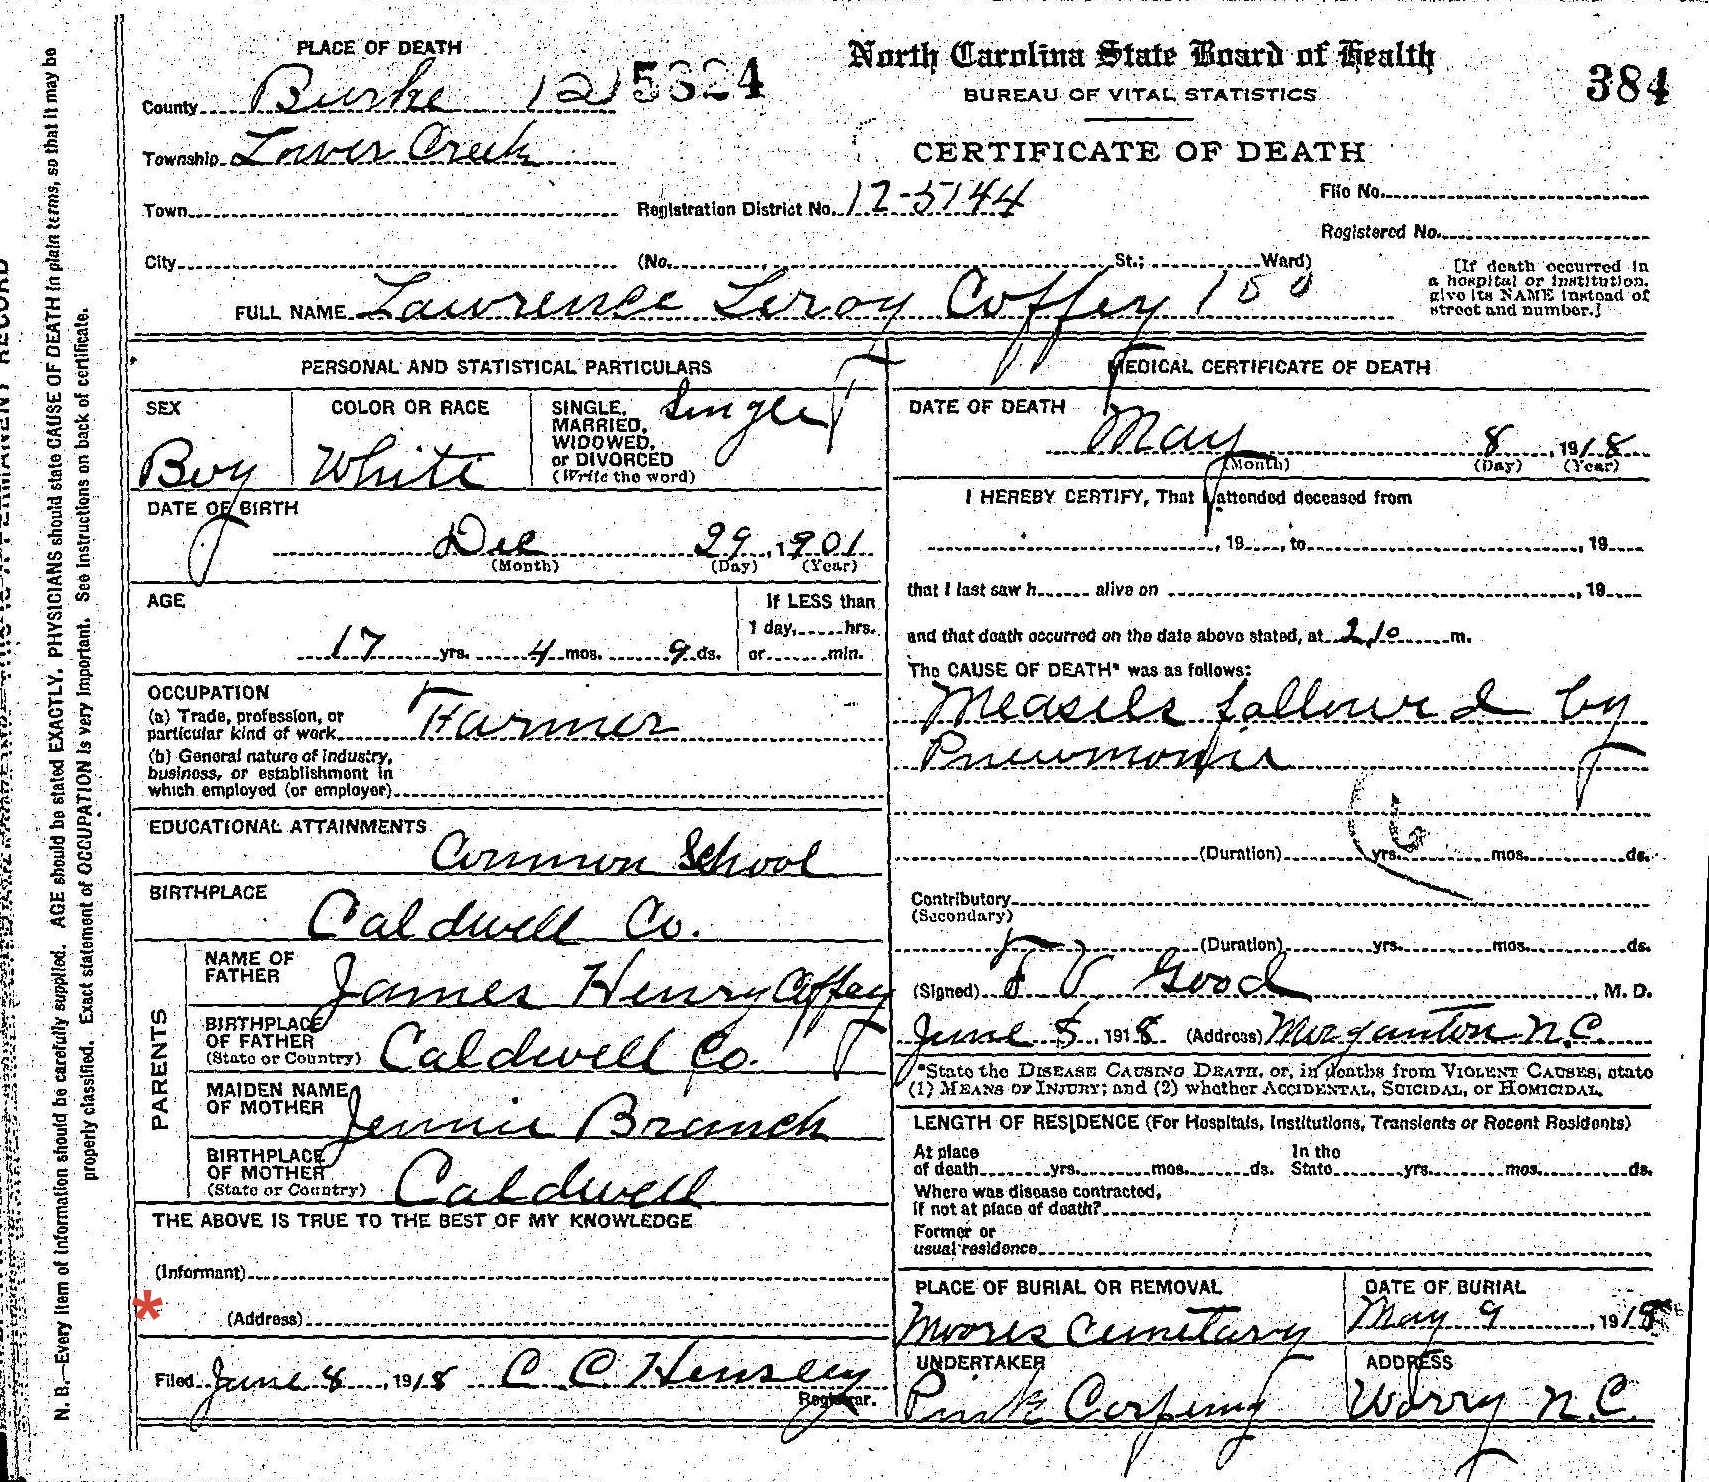 PLACE OF DEATH
North Carolina State Board of Health
384
BUREAU OF VITAL STATISTICS
County Burke 121 5324
CERTIFICATE OF DEATH
Township Lower Creek
Town
Registration District No. 12-5144
File No.
Registered No.
City (No. St.; Ward)
[If death occurred in
a hospital or institution,
give its NAME instead of
street and number.]
FULL NAME Lawrence Leroy Coffey 100
PERSONAL AND STATISTICAL PARTICULARS
SEX
Boy
COLOR OR RACE
White
SINGLE,
MARRIED,
WIDOWED,
or DIVORCED
(Write the word)
Single
DATE OF BIRTH
Dec 29, 1901
(Month) (Day) (Year)
AGE
17 yrs. 4 mos. 9 ds.
If LESS than
1 day, hrs.
or min.
OCCUPATION
(a) Trade, profession, or
particular kind of work Farmer
(b) General nature of industry,
business, or establishment in
which employed (or employer)
EDUCATIONAL ATTAINMENTS
Common School
BIRTHPLACE
Caldwell Co.
PARENTS
NAME OF
FATHER James Henry Coffey
BIRTHPLACE
OF FATHER
(State or Country) Caldwell Co.
MAIDEN NAME
OF MOTHER Jennie Branch
BIRTHPLACE
OF MOTHER
(State or Country) Caldwell
THE ABOVE IS TRUE TO THE BEST OF MY KNOWLEDGE
(Informant)
*
(Address)
Filed June 8, 1918 C C Hensley
Registrar.
MEDICAL CERTIFICATE OF DEATH
DATE OF DEATH
May 8, 1918
(Month) (Day) (Year)
I HEREBY CERTIFY, That I attended deceased from
, 19 , to , 19
that I last saw h alive on , 19
and that death occurred on the date above stated, at 2,10 m.
The CAUSE OF DEATH* was as follows:
Measels followed by
Pneumonia
(Duration) yrs. mos. ds.
Contributory
(Secondary)
(Duration) yrs. mos. ds.
(Signed) F V Good, M. D.
June 5, 1918 (Address) Morganton N.C.
*State the DISEASE CAUSING DEATH, or, in deaths from VIOLENT CAUSES, state
(1) MEANS OF INJURY; and (2) whether ACCIDENTAL, SUICIDAL, or HOMICIDAL.
LENGTH OF RESIDENCE (For Hospitals, Institutions, Transients or Recent Residents)
At place
of death yrs. mos. ds.
In the
State yrs. mos. ds.
Where was disease contracted,
if not at place of death?
Former or
usual residence
PLACE OF BURIAL OR REMOVAL
Moores Cemetary
DATE OF BURIAL
May 9, 1918
UNDERTAKER
Pink Corpening
ADDRESS
Worry N.C.
N. B.—Every item of information should be carefully supplied. AGE should be stated EXACTLY. PHYSICIANS should state CAUSE OF DEATH in plain terms, so that it may be
properly classified. Exact statement of OCCUPATION is very important. See instructions on back of certificate.